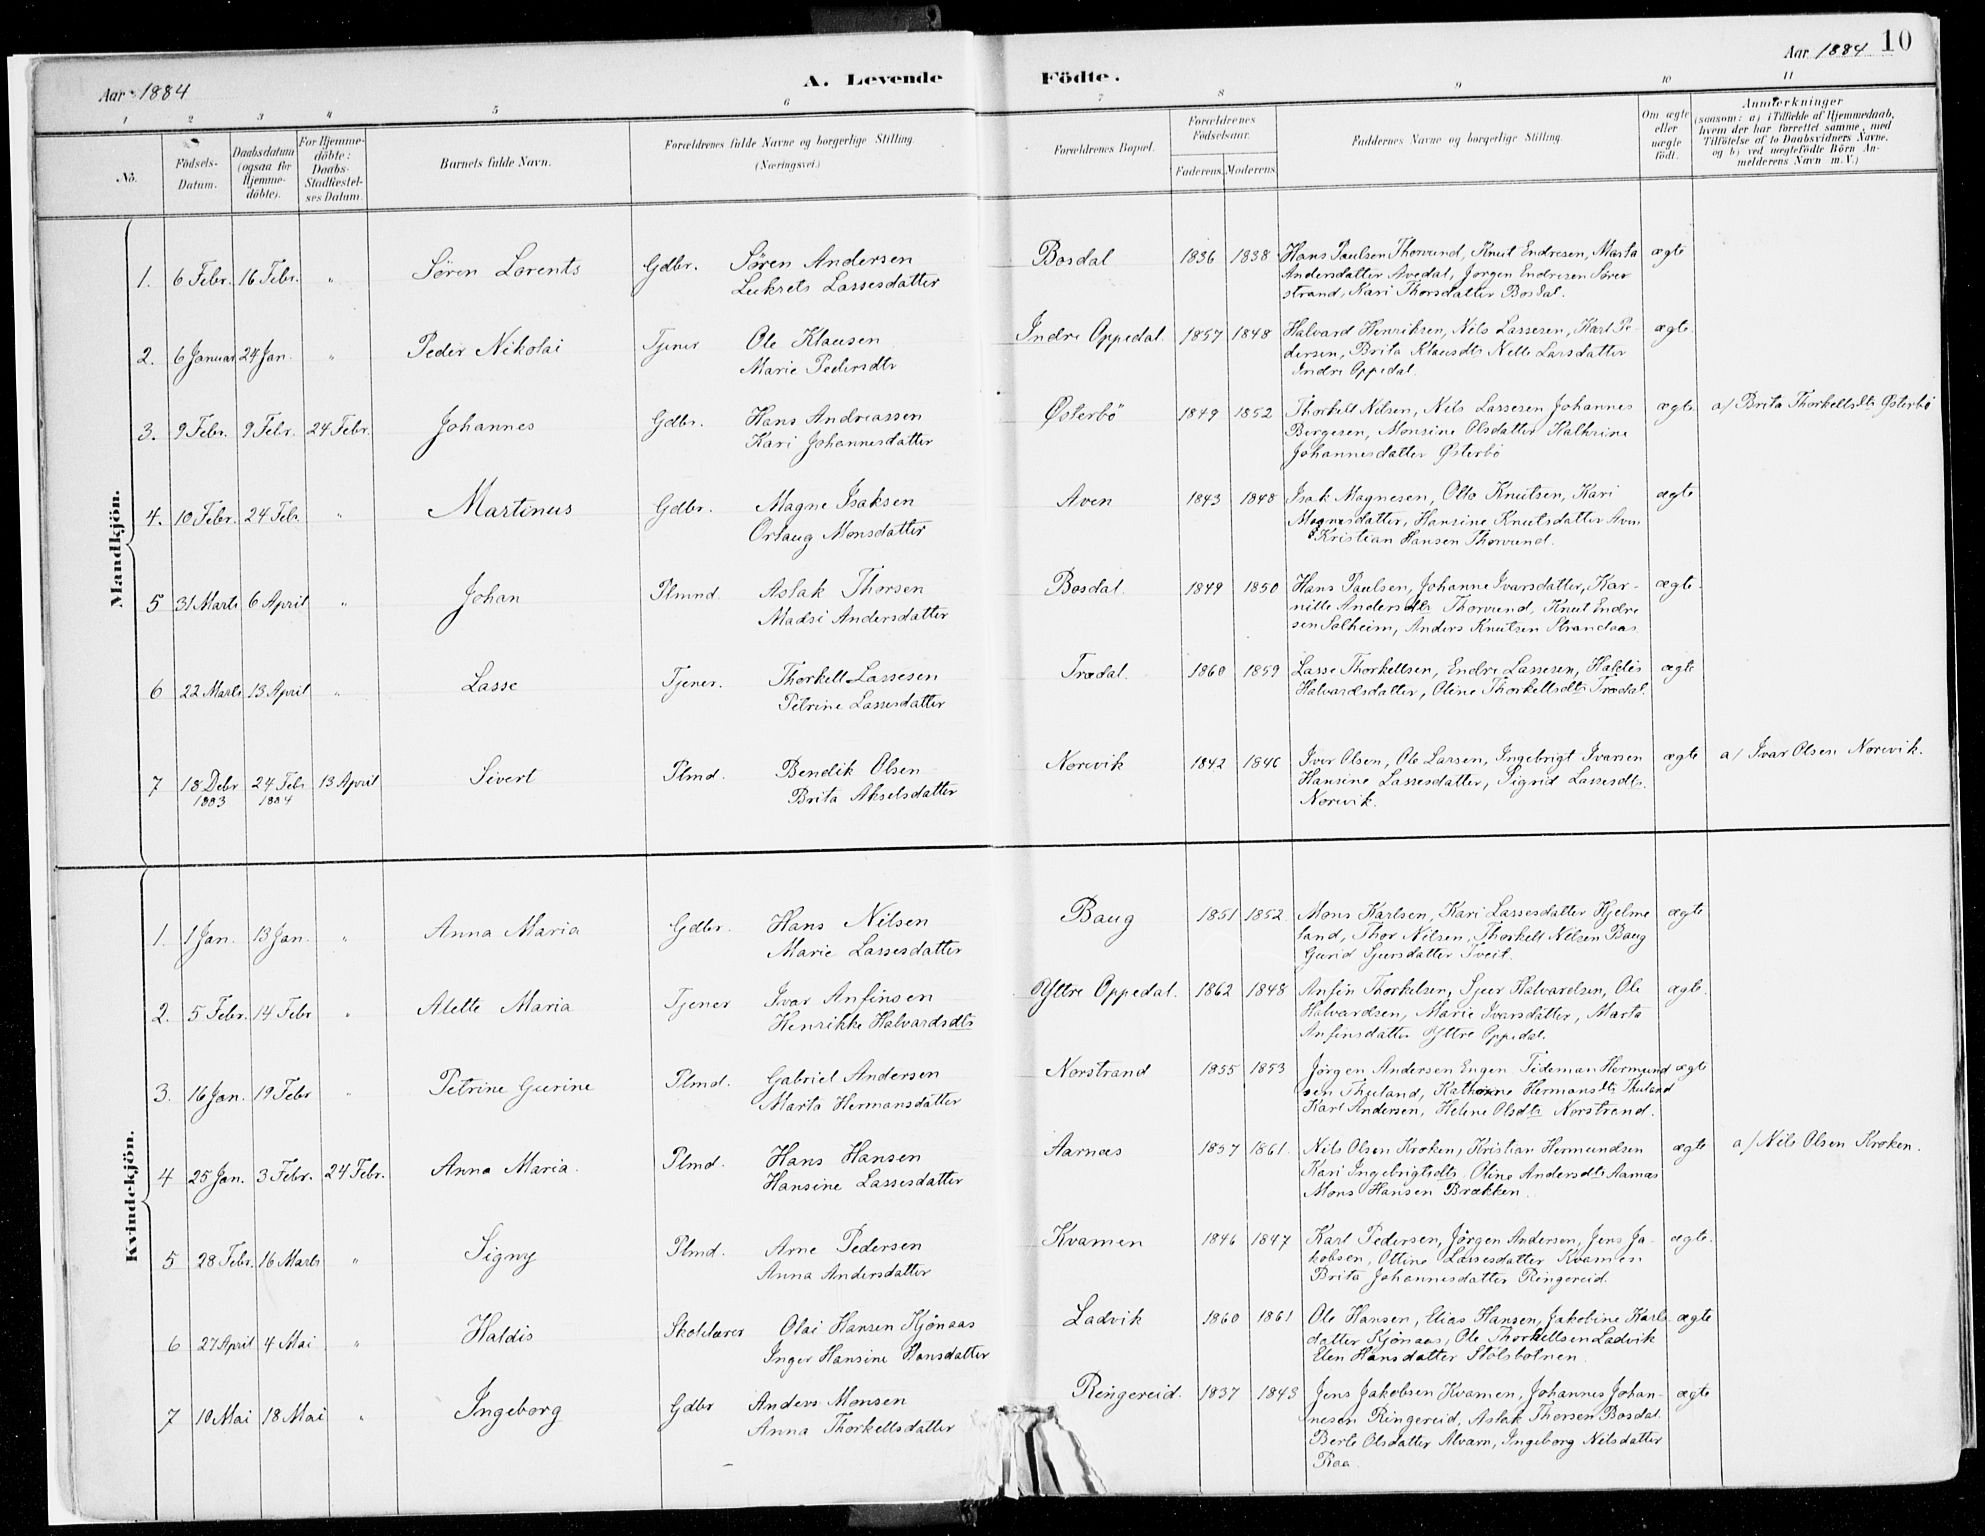 Aar 1884
A. Levende Födte.
Aar 1884 10
1 2 3 4 5 6 7 8 9 10 11
No.
Födsels-Datum.
Daabsdatum (ogsaa for Hjemme-döbte).
For Hjemme-döbte: Daabs-Stadfæstel-ses Datum.
Barnets fulde Navn.
Forældrenes fulde Navne og borgerlige Stilling. (Næringsvei)
Forældrenes Bopæl.
Forældrenes Födselsaar.
Faderens. Moderens.
Faddernes Navne og borgerlige Stilling.
Om ægte eller uægte födt.
Anmærkninger
(saasom: a) i Tilfælde af Hjemmedaab, hvem der har forrettet samme, med Tilföielse af to Daabsvidners Navne, og b) ved uægtefödte Börn Anmelderens Navn m.V.)
Mandkjön.
1. 6 Febr. 16 Febr. " Sören Lorents Gdbr. Sören Andersen Bosdal 1836 1838 Hans Paulsen Thorvund, Knut Endresen, Marta ægte
Lukrets Lassesdatter Andersdatter Avedal, Jørgen Endresen Sörer
strand, Kari Thorsdatter Bosdal.
2. 6 Januar 24 Jan. " Peder Nikolai Tjener Ole Klausen Indre Oppedal. 1857 1848 Halvard Henriksen, Nils Lassesen, Karl Pe- ægte.
Marie Pedersdtr dersen, Brita Klausdtr Nelle Larsdatter
Indre Oppedal.
3. 9 Febr. 9 Febr. 24 Febr. Johannes Gdbr. Hans Andreassen Østerbö 1849 1852 Thorkell Nilsen, Nils Lassesen Johannes ægte a/ Brita Thorkellsdtr Østerbö
Kari Johannesdatter Børgesen, Monsine Olsdatter Kathrine
Johannesdatter Østerbö
4. 10 Febr. 24 Febr. " Martinus Gdbr. Magne Isaksen Aven 1843 1848 Isak Magnesen, Otto Knutsen, Kari ægte
Orlaug Monsdatter Magnesdatter, Hansine Knutsdatter Aven
Kristian Hansen Thorvund.
5 31 Marts 6 April " Johan Plmnd. Aslak Thorsen Bosdal. 1849 1850 Hans Paulsen, Johanne Ivarsdatter, Kar- ægte.
Madsi Andersdatter nille Andersdtr Thorvund, Knut Endre
sen Solheim, Anders Knutsen Strandaas
6 22 Marts 13 April " Lasse Tjener. Thorkell Lassesen Trædal. 1860 1859 Lasse Thorkellsen, Endre Lassesen, Haldis ægte
Petrine Lassesdatter Halvardsdatter, Oline Thorkellsdtr Trædal.
7 18 Debr 1883 24 Febr 1884 13 April Sivert Plmd. Bendik Olsen Norevik 1842 1846 Iver Olsen, Ole Larsen, Ingebrigt Ivarsen ægte a/ Ivar Olsen Norevik.
Brita Akselsdatter Hansine Lassesdatter, Sigrid Lassesdtr.
Norevik.
Kvindekjön.
1. 1 Jan. 13 Jan. " Anna Maria Gdbr. Hans Nilsen Baug 1851 1852. Mons Karlsen, Kari Lassesdatter Hjelme ægte
Marie Lassesdatter land, Thor Nilsen, Thorkell Nilsen Baug
Gurid Sjursdatter Tveit.
2. 5 Febr. 14 Febr " Alette Maria Tjener Ivar Anfinsen Yttre Oppedal. 1862 1848 Anfin Thorkelsen, Sjur Halvardsen, Ole ægte.
Henrikke Halvardsdtr Halvardsen, Marie Ivarsdatter, Marta
Anfinsdatter Yttre Oppedal.
3. 16 Jan. 19 Febr " Petrine Gurine Plmd. Gabriel Andersen Norstrand 1855 1853 Jörgen Andersen Engen Tideman Hermund ægte
Marta Hermansdatter sen Thuland, Kathrine Hermansdtr Thuland
Karl Andersen, Helene Olsdtr Norstrand.
4 25 Jan. 3 Febr. 24 Febr. Anna Maria. Plmd. Hans Hansen Aarnæs 1857 1861. Nils Olsen Kroken, Kristian Hermundsen ægte a/ Nils Olsen Kroken.
Hansine Lassesdatter Kari Ingebrigtsdtr. Oline Andersdtr Aarnæs
Mons Hansen Brækken.
5 28 Febr. 16 Marts " Signy Plmd. Arne Pedersen Kvamen 1846 1847 Karl Pedersen, Jörgen Andersen, Jens Ja- ægte.
Anna Andersdatter kobsen, Oline Lassesdatter Kvamen
Brita Johannesdatter Ringereid.
6 27 April 4 Mai " Haldis Skolelærer Olai Hansen Kjönaas Ladvik 1860 1861 Ole Hansen, Elias Hansen, Jakobine Karls ægte
Inger Hansine Hansdatter datter Kjönaas, Ole Thorkellsen Ladvik
Elen Hansdatter Stölsbotnen.
7 10 Mai 18 Mai " Ingeborg Gdbr Anders Monsen Ringereid. 1837 1843 Jens Jakobsen Kvamen, Johannes Johan- ægte
Anna Thorkellsdatter nesen Ringereid, Aslak Thorsen Bosdal.
Berte Olsdatter Alvarn, Ingeborg Nilsdatter
Raa